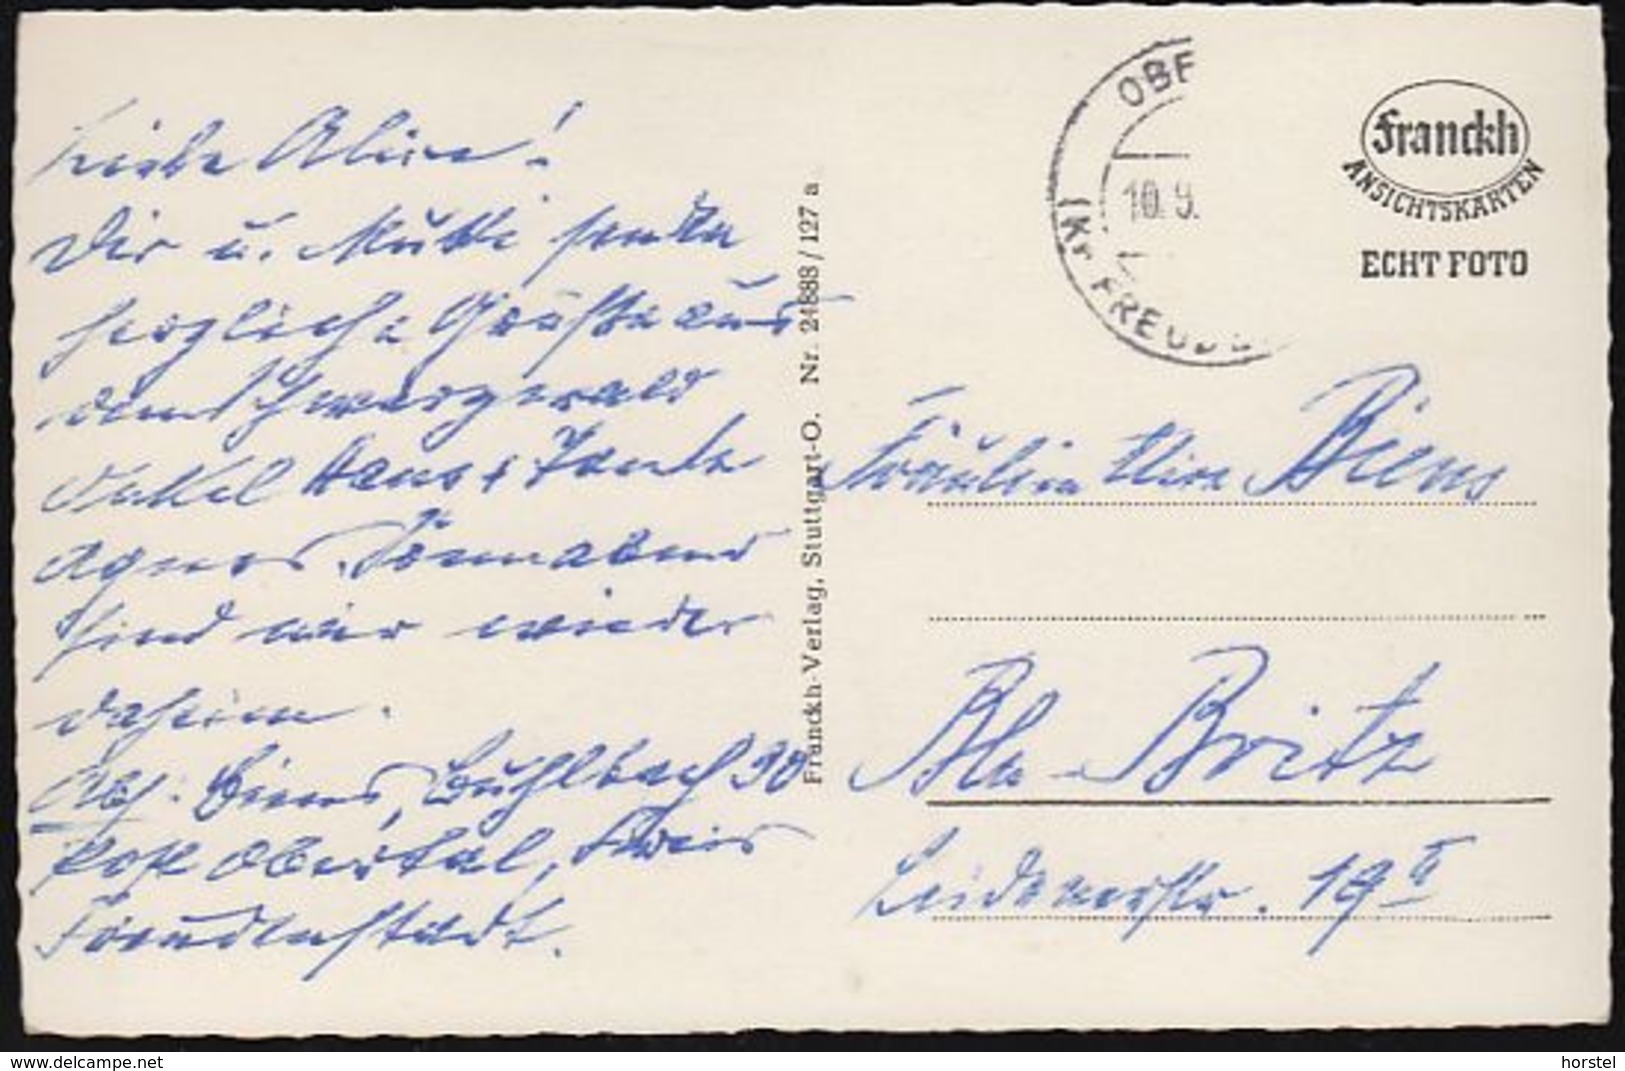 Liebe Alice!
Dir u. Mutti senden
herzliche Grüße aus
dem Schwarzwald
Onkel Hans + Tante
Agnes. Sonnabend
sind wir wieder
daheim.
Abs. Biens, Buhlbach 30
Post Obertal, Kreis
Freudenstadt.
Franckh-Verlag, Stuttgart-O. Nr. 24888/127 a
OBE
10.9.
(Kr FREUDE
Franckh
ANSICHTSKARTEN
ECHT FOTO
Fräulein Biens
Bln - Britz
19 II
www.delcampe.net
horstel